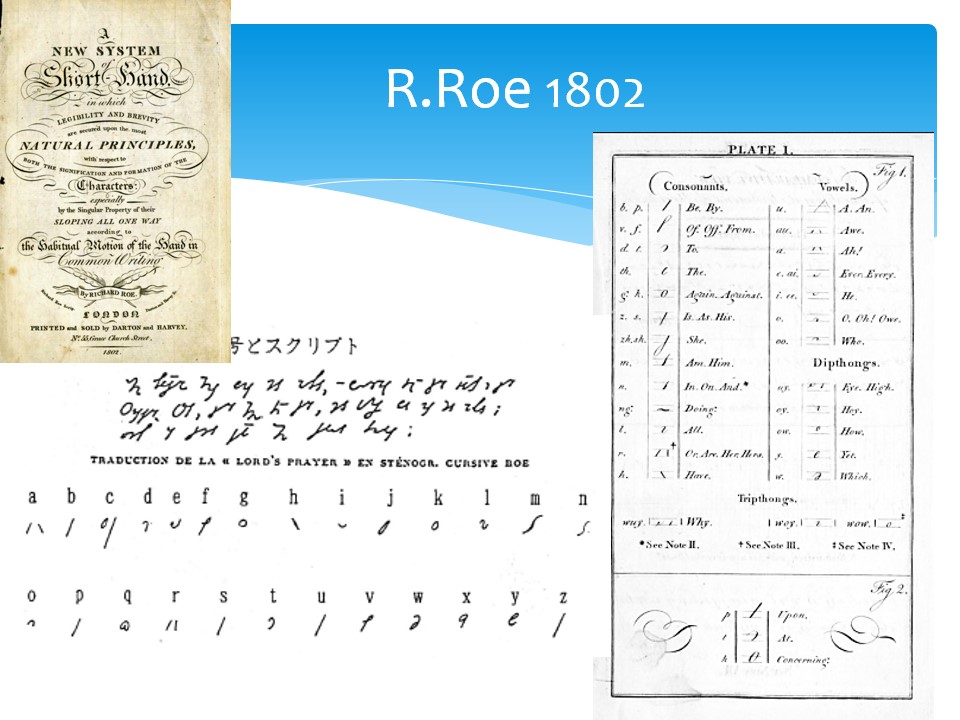 R.Roe 1802
A
NEW SYSTEM
of
Short-Hand,
in which
LEGIBILITY AND BREVITY
are secured upon the most
NATURAL PRINCIPLES,
with respect to
BOTH THE SIGNIFICATION AND FORMATION OF THE
Characters:
especially
by the Singular Property of their
SLOPING ALL ONE WAY
according to
the Habitual Motion of the Hand in
Common Writing
By RICHARD ROE.
LONDON
PRINTED and SOLD by DARTON and HARVEY,
No. 55, Grace Church Street,
1802.
号とスクリプト
TRADUCTION DE LA « LORD'S PRAYER » EN STÉNOGR. CURSIVE ROE
a b c d e f g h i j k l m n
o p q r s t u v w x y z
PLATE 1.
Fig 1.
Consonants, Vowels.
b. p. Be. By. u. A. An.
v. f. Of. Off. From. au. Awe.
d. t. To. a. Ah!
th. The. e. ai. Ever. Every.
g. k. Again. Against. i. ee. He.
z. s. Is. As. His. o. O. Oh! Owe.
zh. sh. She. oo. Who.
m. Am. Him. Dipthongs.
n. In. On. And.* uy. Eye. High.
ng. Doing. oy. Hoy.
l. All. ow. How.
r. † Or. Are. Her. Hers. y. Yet.
h. Have. w. Which.
Tripthongs.
wuy. Why. woy. wow. ‡
* See Note II. † See Note III. ‡ See Note IV.
Fig 2.
p Upon.
t At.
k Concerning.